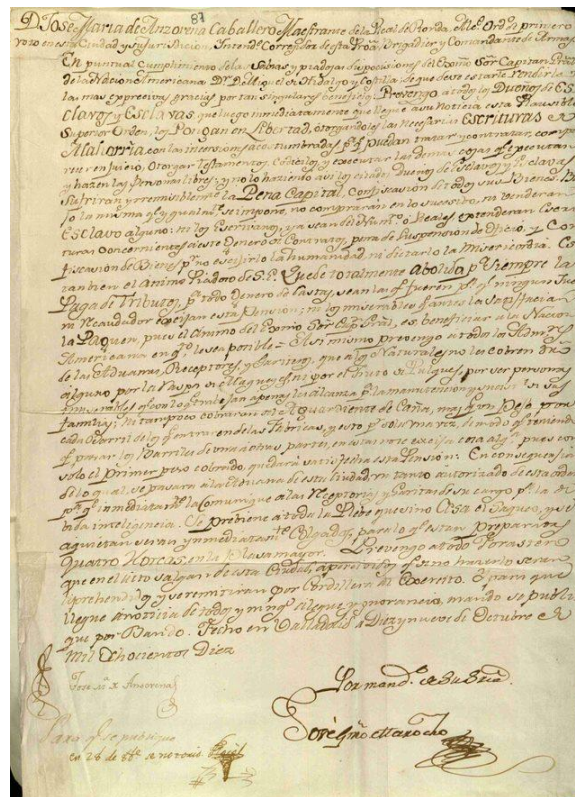 87
D. José Maria de Anzorena Caballero Maestrante de la Real de Ronda, Alc.e Ord.o de primero
voto en esta Ciudad y su Jurisdicion, Intend.te Corregidor de esta Prov.a Brigadier y Comandante de Armas
En puntual Cumplimiento de las Sabias y piadosas disposiciones del Exmo Sor Capitan Gral
de la Nacion Americana D.r D. Miguel Hidalgo y Costilla, de que debe esta rendirle
las mas expresivas gracias por tan singulares beneficios: Prevengo a todos los Dueños de Es
clavos y Esclavas que luego inmediatamente que llegue a su noticia esta plausible
Superior Orden, los pongan en livertad, otorgandoles las necesarias Escrituras de
Alahorria, con las inserciones acostumbradas p.a q.e puedan tratar y contratar, compa
recer en Juicio, otorgar Testamentos, Codicilos, y executar las demas cosas q.e executan
y hazen las personas libres: y no lo haziendo asi los citados Dueños de Esclavos y Esclavas
sufriran irremisiblem.te la Pena Capital, Confiscacion de todos sus Bienes. Ba
jo la misma q.e ygualm.te se impone, no compraran en lo sucesivo, ni venderan
Esclavo alguno: ni los Escrivanos, ya sean del Num.o o Reales extenderan Escri
turas concernientes a este Genero de Contratos, pena de Suspension de Oficio, y Con
fiscacion de Bienes p.r no exigirlo la humanidad, ni dictarlo la Misericordia.
tambien el Animo Piadoso de S.E. Quede totalmente Abolida p.a Siempre la
Paga de Tributos, p.a todo Genero de Castas, sean las q.e fueren p.a q.e ningun Juez
ni Recaudador exijan esta Pension; ni los miserables q.e antes la satisfacian
la Paguen, pues el Animo del Exmo Sor Cap.n Gral, es beneficiar a la Nacion
Americana en q.to le sea posible = Asi mismo prevengo a todos los Admres
de las Aduanas, Receptores, y Gariteros, que a los Naturales no les cobren dro
alguno por la Raspa de Magueyes, ni por el fruto de Pulques, por ser personas
miserables q.e con lo q.e trabajan apenas les alcanza p.a la manutencion y subsist.a de sus
familias; Ni tampoco cobraran del Aguardiente de Caña, mas q.e un Peso, por
cada Barril de los q.e entraren de las Fabricas, y esto p.r sola una vez, de modo q.e teniendo
q.e pasar los Barriles de una a otras partes, en esta no se exija cosa alg.a pues con
solo el primer peso cobrado, quedará satisfecha esta Pension: En consequencia
de lo qual, se pasara a la Aduana de esta Ciudad, un tanto autorizado de esta orden
p.a q.e inmediatam.te la comunique a las Receptorias y Garitas de su cargo p.a la de
vida inteligencia. Se previene a toda la Plebe que si no cesa el Saqueo, y se
aquietan, seran ynmediatam.te Colgados, para lo q.e estan preparadas
Quatro Horcas, en la Plasa mayor. Prevengo a todo Forastero
que en el acto salgan de esta Ciudad, apercividos q.e de no hazerlo seran
aprehendidos y se remitiran por Cordillera al Exercito. Y para que
llegue a noticia de todos, y ning.o alegue ygnorancia, mando se publi
que por Bando. Fecho en Valladolid a Diez y nueve de Octubre de
Mil Ochocientos Diez
José M.a de Anzorena
Por mand.o de Su Sria.
Para q.e se publique